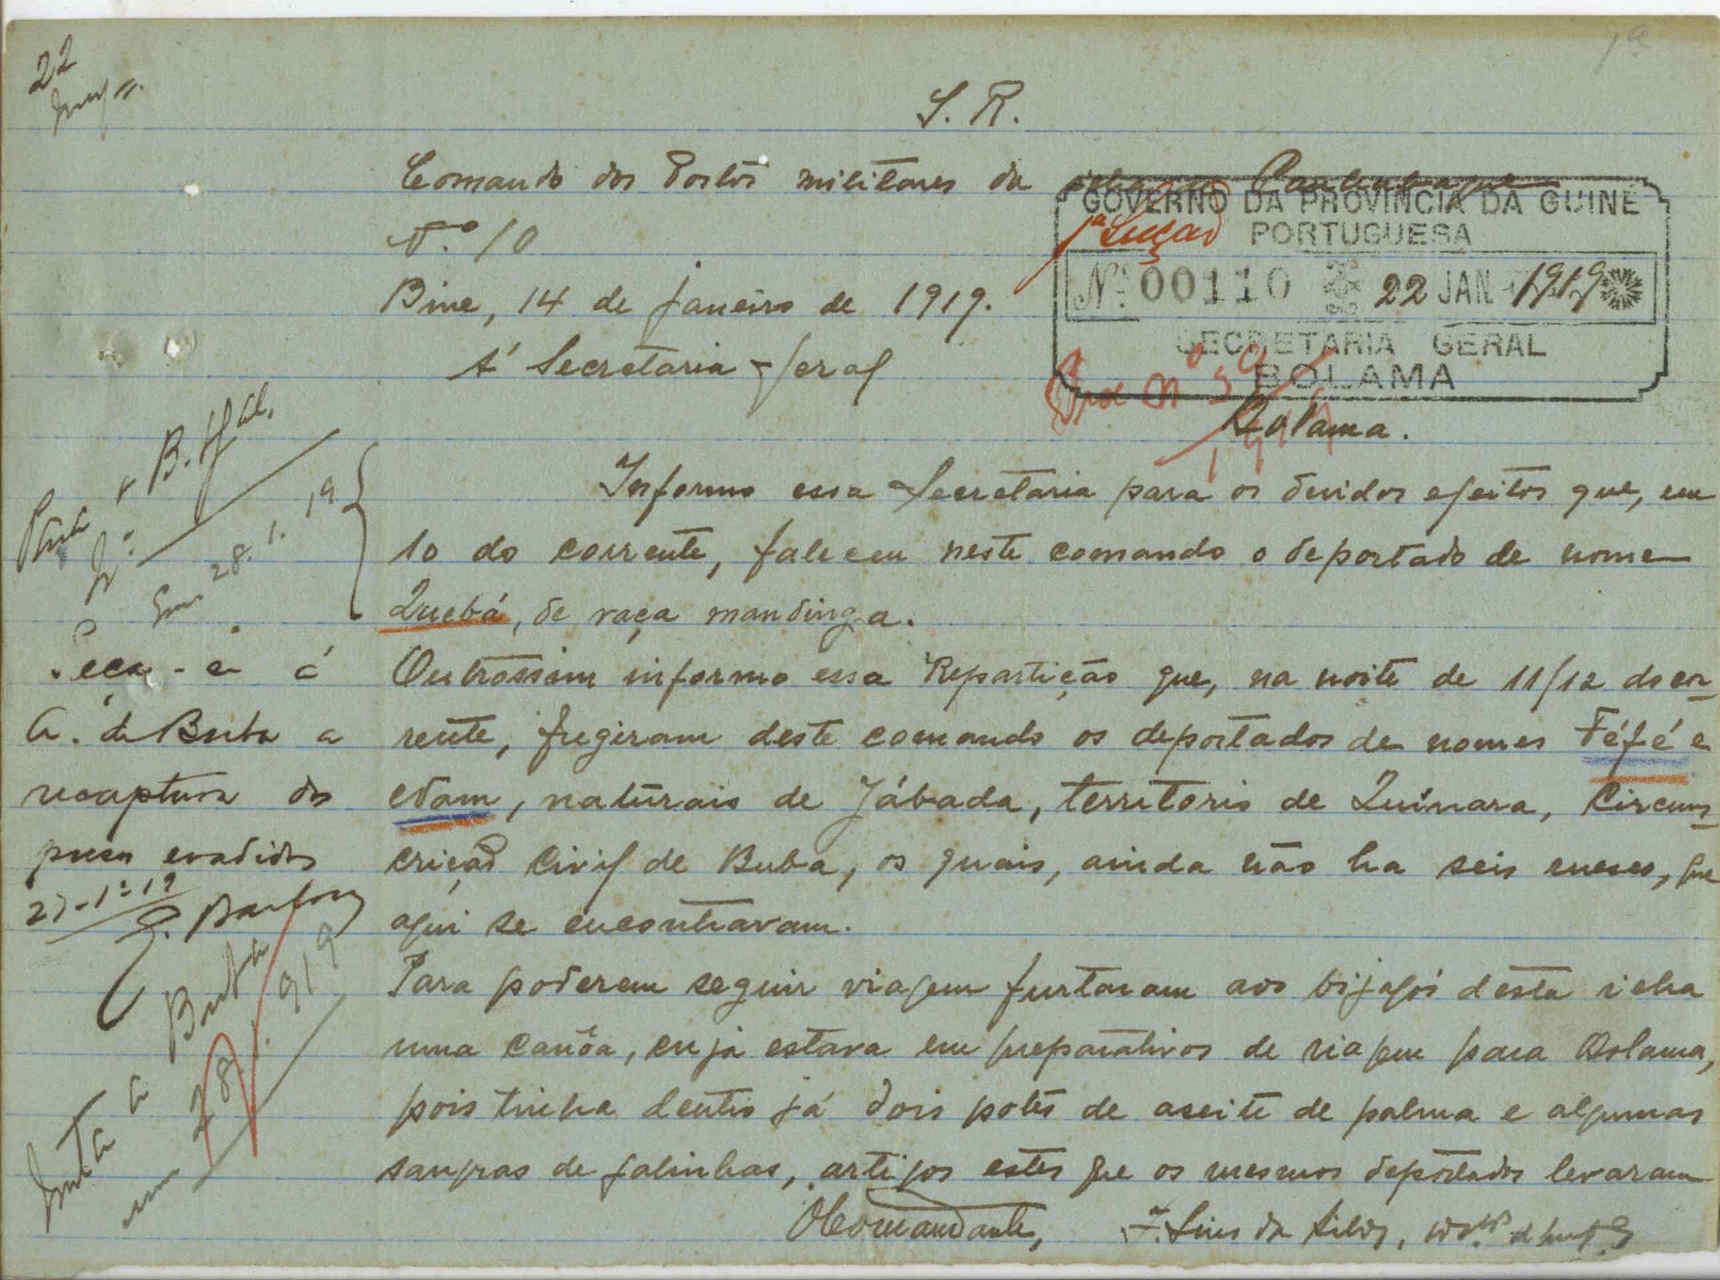 22
S. R.
Comando dos Postos militares da ilha de Canhabaque
N.º 10
Bine, 14 de Janeiro de 1919.
Á Secretaria Geral
Bolama.
GOVERNO DA PROVINCIA DA GUINÉ
PORTUGUESA
1ª Secção
Nº 00110 22 JAN 1919
SECRETARIA GERAL
BOLAMA
Informo essa Secretaria para os devidos efeitos que, em
10 do corrente, faleceu neste comando o deportado de nome
Quebá, de raça mandinga.
Outrossim informo essa Repartição que, na noite de 11/12 do cor-
rente, fugiram deste comando os deportados de nomes Féfé e
edam, naturais de Jábada, territorio de Quínara, Circuns-
crição Civil de Buba, os quais, ainda não ha seis meses, que
aqui se encontravam.
Para poderem seguir viagem furtaram aos bijagós desta ilha
uma canôa, cuja estava em preparativos de viagem para Bolama,
pois tinha dentro já dois potes de aseite de palma e algumas
sangras de galinhas, artigos estes que os mesmos deportados levaram
O Comandante,
F. Luis da Silva,
B. Of al.
Em 28.1.19
Peça-se á
C. de Buba a
recaptura dos
presos evadidos
27-1º-19
Buba
28/1/919